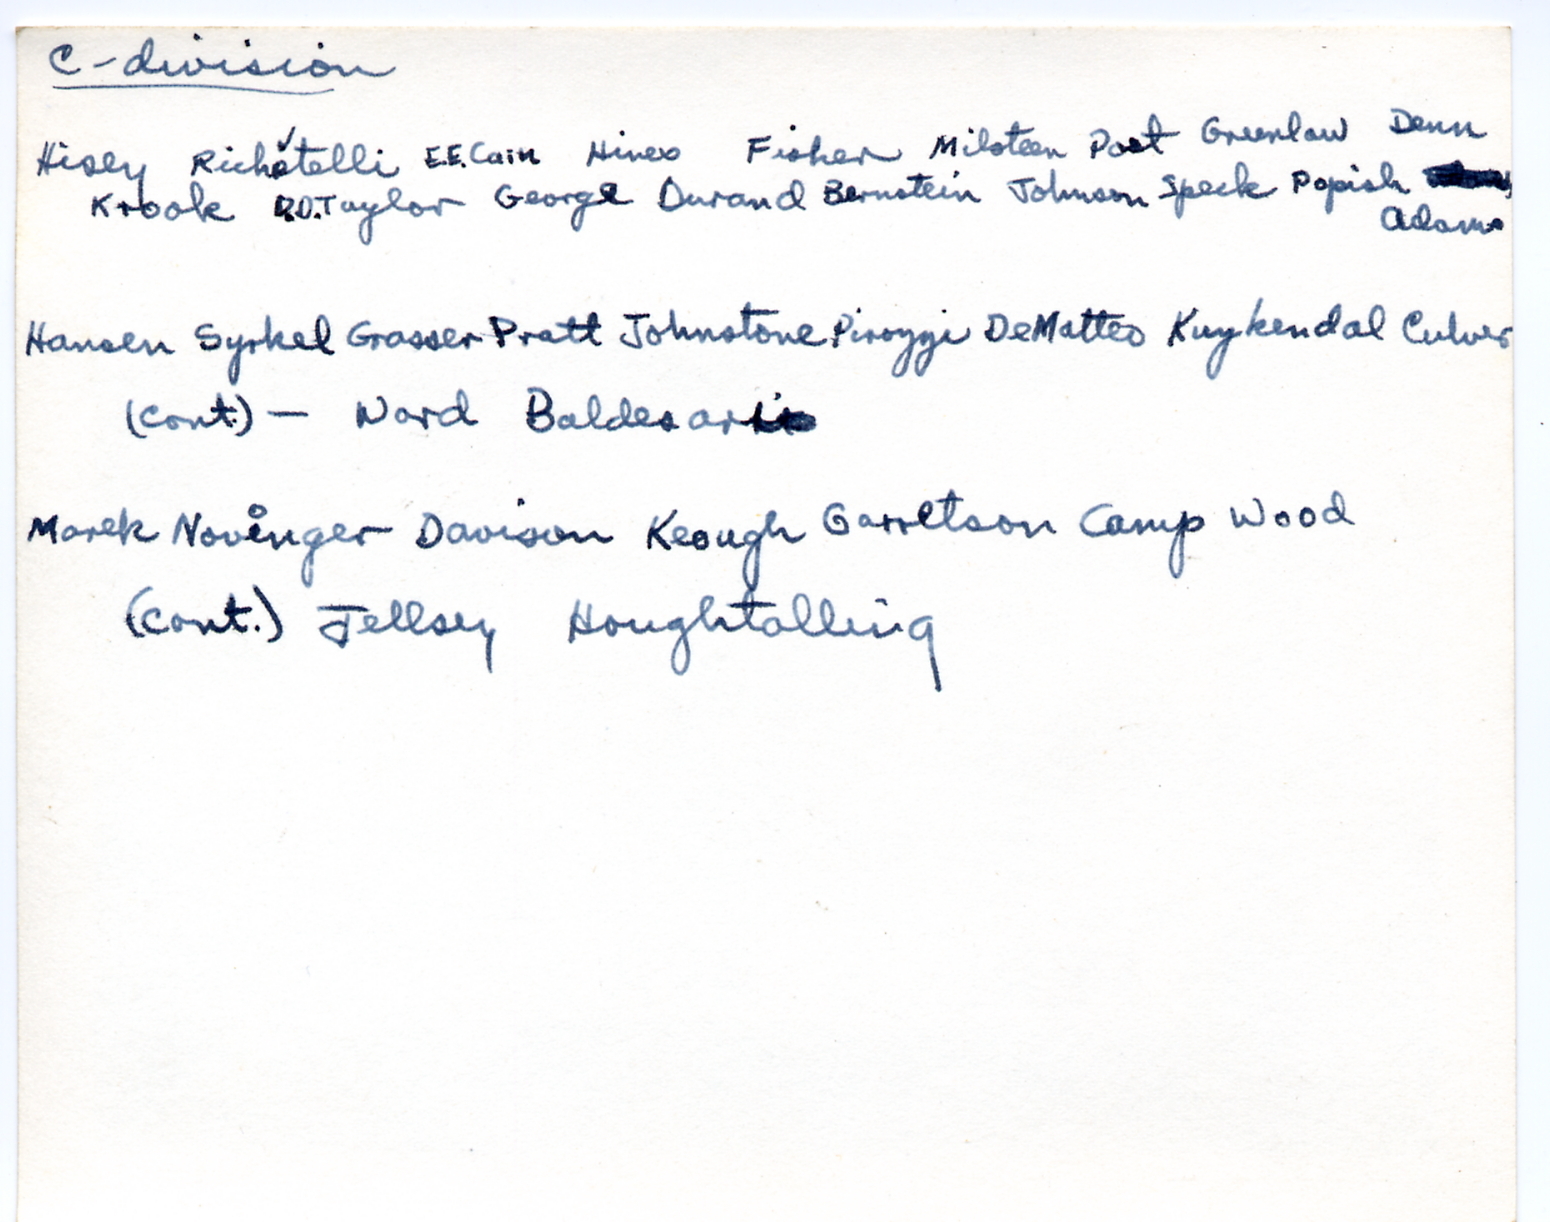 C-division
Hisey Richitelli E.E.Cain Hines Fisher Milsteen Post Greenlaw Denn
Krook R.O.Taylor George Durand Bernstein Johnson Speck Popish
Adams
Hansen Syrkel Grasser Pratt Johnstone Piroggi DeMatteo Kuykendal Culver
(cont.) — Nord Baldesari
Marek Novinger Davison Keough Garretson Camp Wood
(cont.) Jellsey Houghtalling